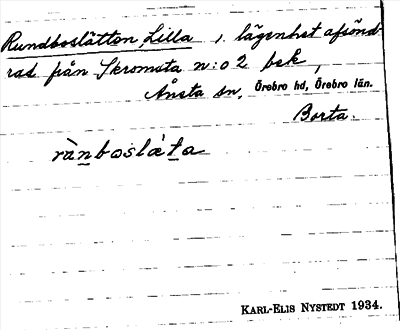 Rundboslätten Lilla, lägenhet afsönd-
rad från Skromsta n:o 2 bek,
Ånsta sn, Örebro hd, Örebro län.
Borta.
rànboslàta
KARL-ELIS NYSTEDT 1934.